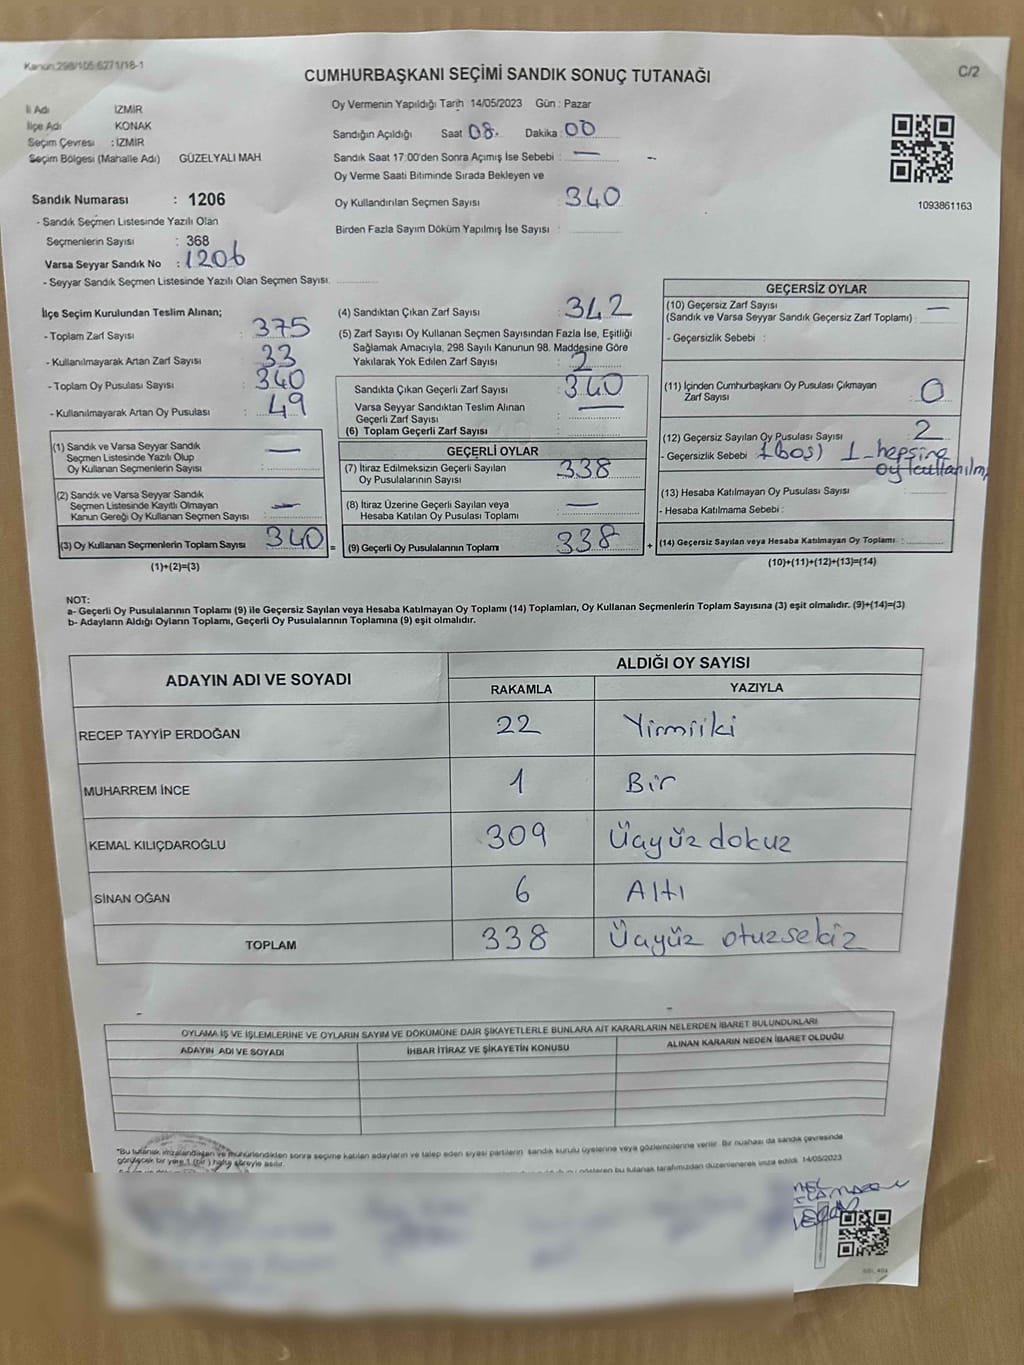 Kanun:298/105:6271/18-1
C/2
CUMHURBAŞKANI SEÇİMİ SANDIK SONUÇ TUTANAĞI
İl Adı İZMİR
İlçe Adı KONAK
Seçim Çevresi : İZMİR
Seçim Bölgesi (Mahalle Adı) GÜZELYALI MAH
Sandık Numarası : 1206
- Sandık Seçmen Listesinde Yazılı Olan
Seçmenlerin Sayısı : 368
Varsa Seyyar Sandık No : 1206
- Seyyar Sandık Seçmen Listesinde Yazılı Olan Seçmen Sayısı:
Oy Vermenin Yapıldığı Tarih 14/05/2023 Gün : Pazar
Sandığın Açıldığı Saat 08. Dakika : 00
Sandık Saat 17:00'den Sonra Açımış İse Sebebi : —
Oy Verme Saati Bitiminde Sırada Bekleyen ve
Oy Kullandırılan Seçmen Sayısı : 340
Birden Fazla Sayım Döküm Yapılmış İse Sayısı :
1093861163
İlçe Seçim Kurulundan Teslim Alınan;
- Toplam Zarf Sayısı : 375
- Kullanılmayarak Artan Zarf Sayısı : 33
- Toplam Oy Pusulası Sayısı : 340
- Kullanılmayarak Artan Oy Pusulası : 49
(1) Sandık ve Varsa Seyyar Sandık
Seçmen Listesinde Yazılı Olup
Oy Kullanan Seçmenlerin Sayısı : —
(2) Sandık ve Varsa Seyyar Sandık
Seçmen Listesinde Kayıtlı Olmayan
Kanun Gereği Oy Kullanan Seçmen Sayısı : —
(3) Oy Kullanan Seçmenlerin Toplam Sayısı 340 =
(1)+(2)=(3)
(4) Sandıktan Çıkan Zarf Sayısı : 342
(5) Zarf Sayısı Oy Kullanan Seçmen Sayısından Fazla İse, Eşitliği
Sağlamak Amacıyla, 298 Sayılı Kanunun 98. Maddesine Göre
Yakılarak Yok Edilen Zarf Sayısı : 2
Sandıkta Çıkan Geçerli Zarf Sayısı : 340
Varsa Seyyar Sandıktan Teslim Alınan
Geçerli Zarf Sayısı : —
(6) Toplam Geçerli Zarf Sayısı :
GEÇERLİ OYLAR
(7) İtiraz Edilmeksizin Geçerli Sayılan
Oy Pusulalarının Sayısı : 338
(8) İtiraz Üzerine Geçerli Sayılan veya
Hesaba Katılan Oy Pusulası Toplamı : —
(9) Geçerli Oy Pusulalarının Toplamı : 338 +
GEÇERSİZ OYLAR
(10) Geçersiz Zarf Sayısı
(Sandık ve Varsa Seyyar Sandık Geçersiz Zarf Toplamı) : —
- Geçersizlik Sebebi :
(11) İçinden Cumhurbaşkanı Oy Pusulası Çıkmayan
Zarf Sayısı : 0
(12) Geçersiz Sayılan Oy Pusulası Sayısı : 2
- Geçersizlik Sebebi : 1 (boş) 1 - hepsine
oy kullanılmı
(13) Hesaba Katılmayan Oy Pusulası Sayısı :
- Hesaba Katılmama Sebebi :
(14) Geçersiz Sayılan veya Hesaba Katılmayan Oy Toplamı :
(10)+(11)+(12)+(13)=(14)
NOT:
a- Geçerli Oy Pusulalarının Toplamı (9) ile Geçersiz Sayılan veya Hesaba Katılmayan Oy Toplamı (14) Toplamları, Oy Kullanan Seçmenlerin Toplam Sayısına (3) eşit olmalıdır. (9)+(14)=(3)
b- Adayların Aldığı Oyların Toplamı, Geçerli Oy Pusulalarının Toplamına (9) eşit olmalıdır.
ADAYIN ADI VE SOYADI
ALDIĞI OY SAYISI
RAKAMLA YAZIYLA
RECEP TAYYİP ERDOĞAN 22 Yirmiiki
MUHARREM İNCE 1 Bir
KEMAL KILIÇDAROĞLU 309 Üçyüz dokuz
SİNAN OĞAN 6 Altı
TOPLAM 338 Üçyüz otuzsekiz
OYLAMA İŞ VE İŞLEMLERİNE VE OYLARIN SAYIM VE DÖKÜMÜNE DAİR ŞİKAYETLERLE BUNLARA AİT KARARLARIN NELERDEN İBARET BULUNDUKLARI
ADAYIN ADI VE SOYADI İHBAR İTİRAZ VE ŞİKAYETİN KONUSU ALINAN KARARIN NEDEN İBARET OLDUĞU
*Bu tutanak imzalandıktan ve mühürlendikten sonra seçime katılan adayların ve talep eden siyasi partilerin sandık kurulu üyelerine veya gözlemcilerine verilir. Bir nüshası da sandık çevresinde
görülecek bir yere 1 (bir) hafta süreyle asılır.
gösteren bu tutanak tarafımızdan düzenlenerek imza edildi. 14/05/2023